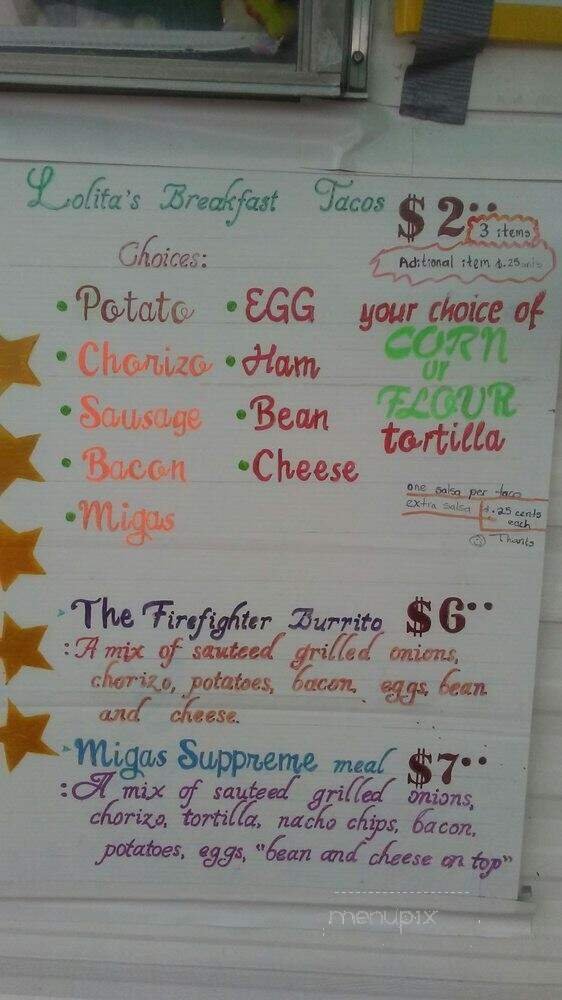 Lolita's Breakfast Tacos $2••
3 items
Aditional item $.25 cents
Choices:
• Potato
• Chorizo
• Sausage
• Bacon
• Migas
• EGG
• Ham
• Bean
• Cheese
your choice of
CORN
or
FLOUR
tortilla
one salsa per taco
extra salsa $.25 cents
each
Thanks
The Firefighter Burrito $6••
:A mix of sauteed grilled onions,
chorizo, potatoes, bacon, eggs, bean
and cheese.
Migas Suppreme meal $7••
:A mix of sauteed grilled onions,
chorizo, tortilla, nacho chips, bacon,
potatoes, eggs, "bean and cheese on top"
menupix